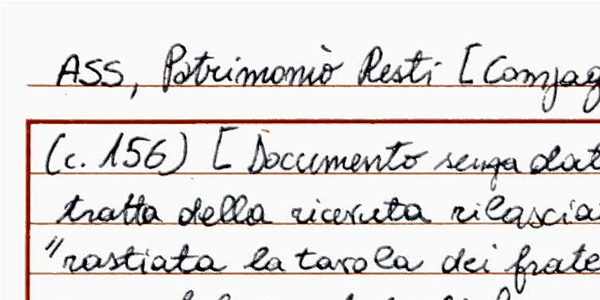 ASS, Patrimonio Resti [Compag
(c. 156) [Documento senza dat
tratta della ricevuta rilascia
"rastiata la tavola dei frate